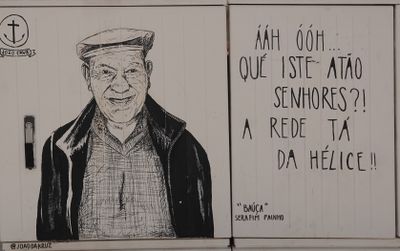 JOÃO CRUZ
ÁÁH ÓÓH...
QUÉ ISTE ATÃO
SENHORES?!
A REDE TÁ
DA HÉLICE!!
"BAÚÇA"
SERAFIM PAINHO
@JOAODAKRUZ